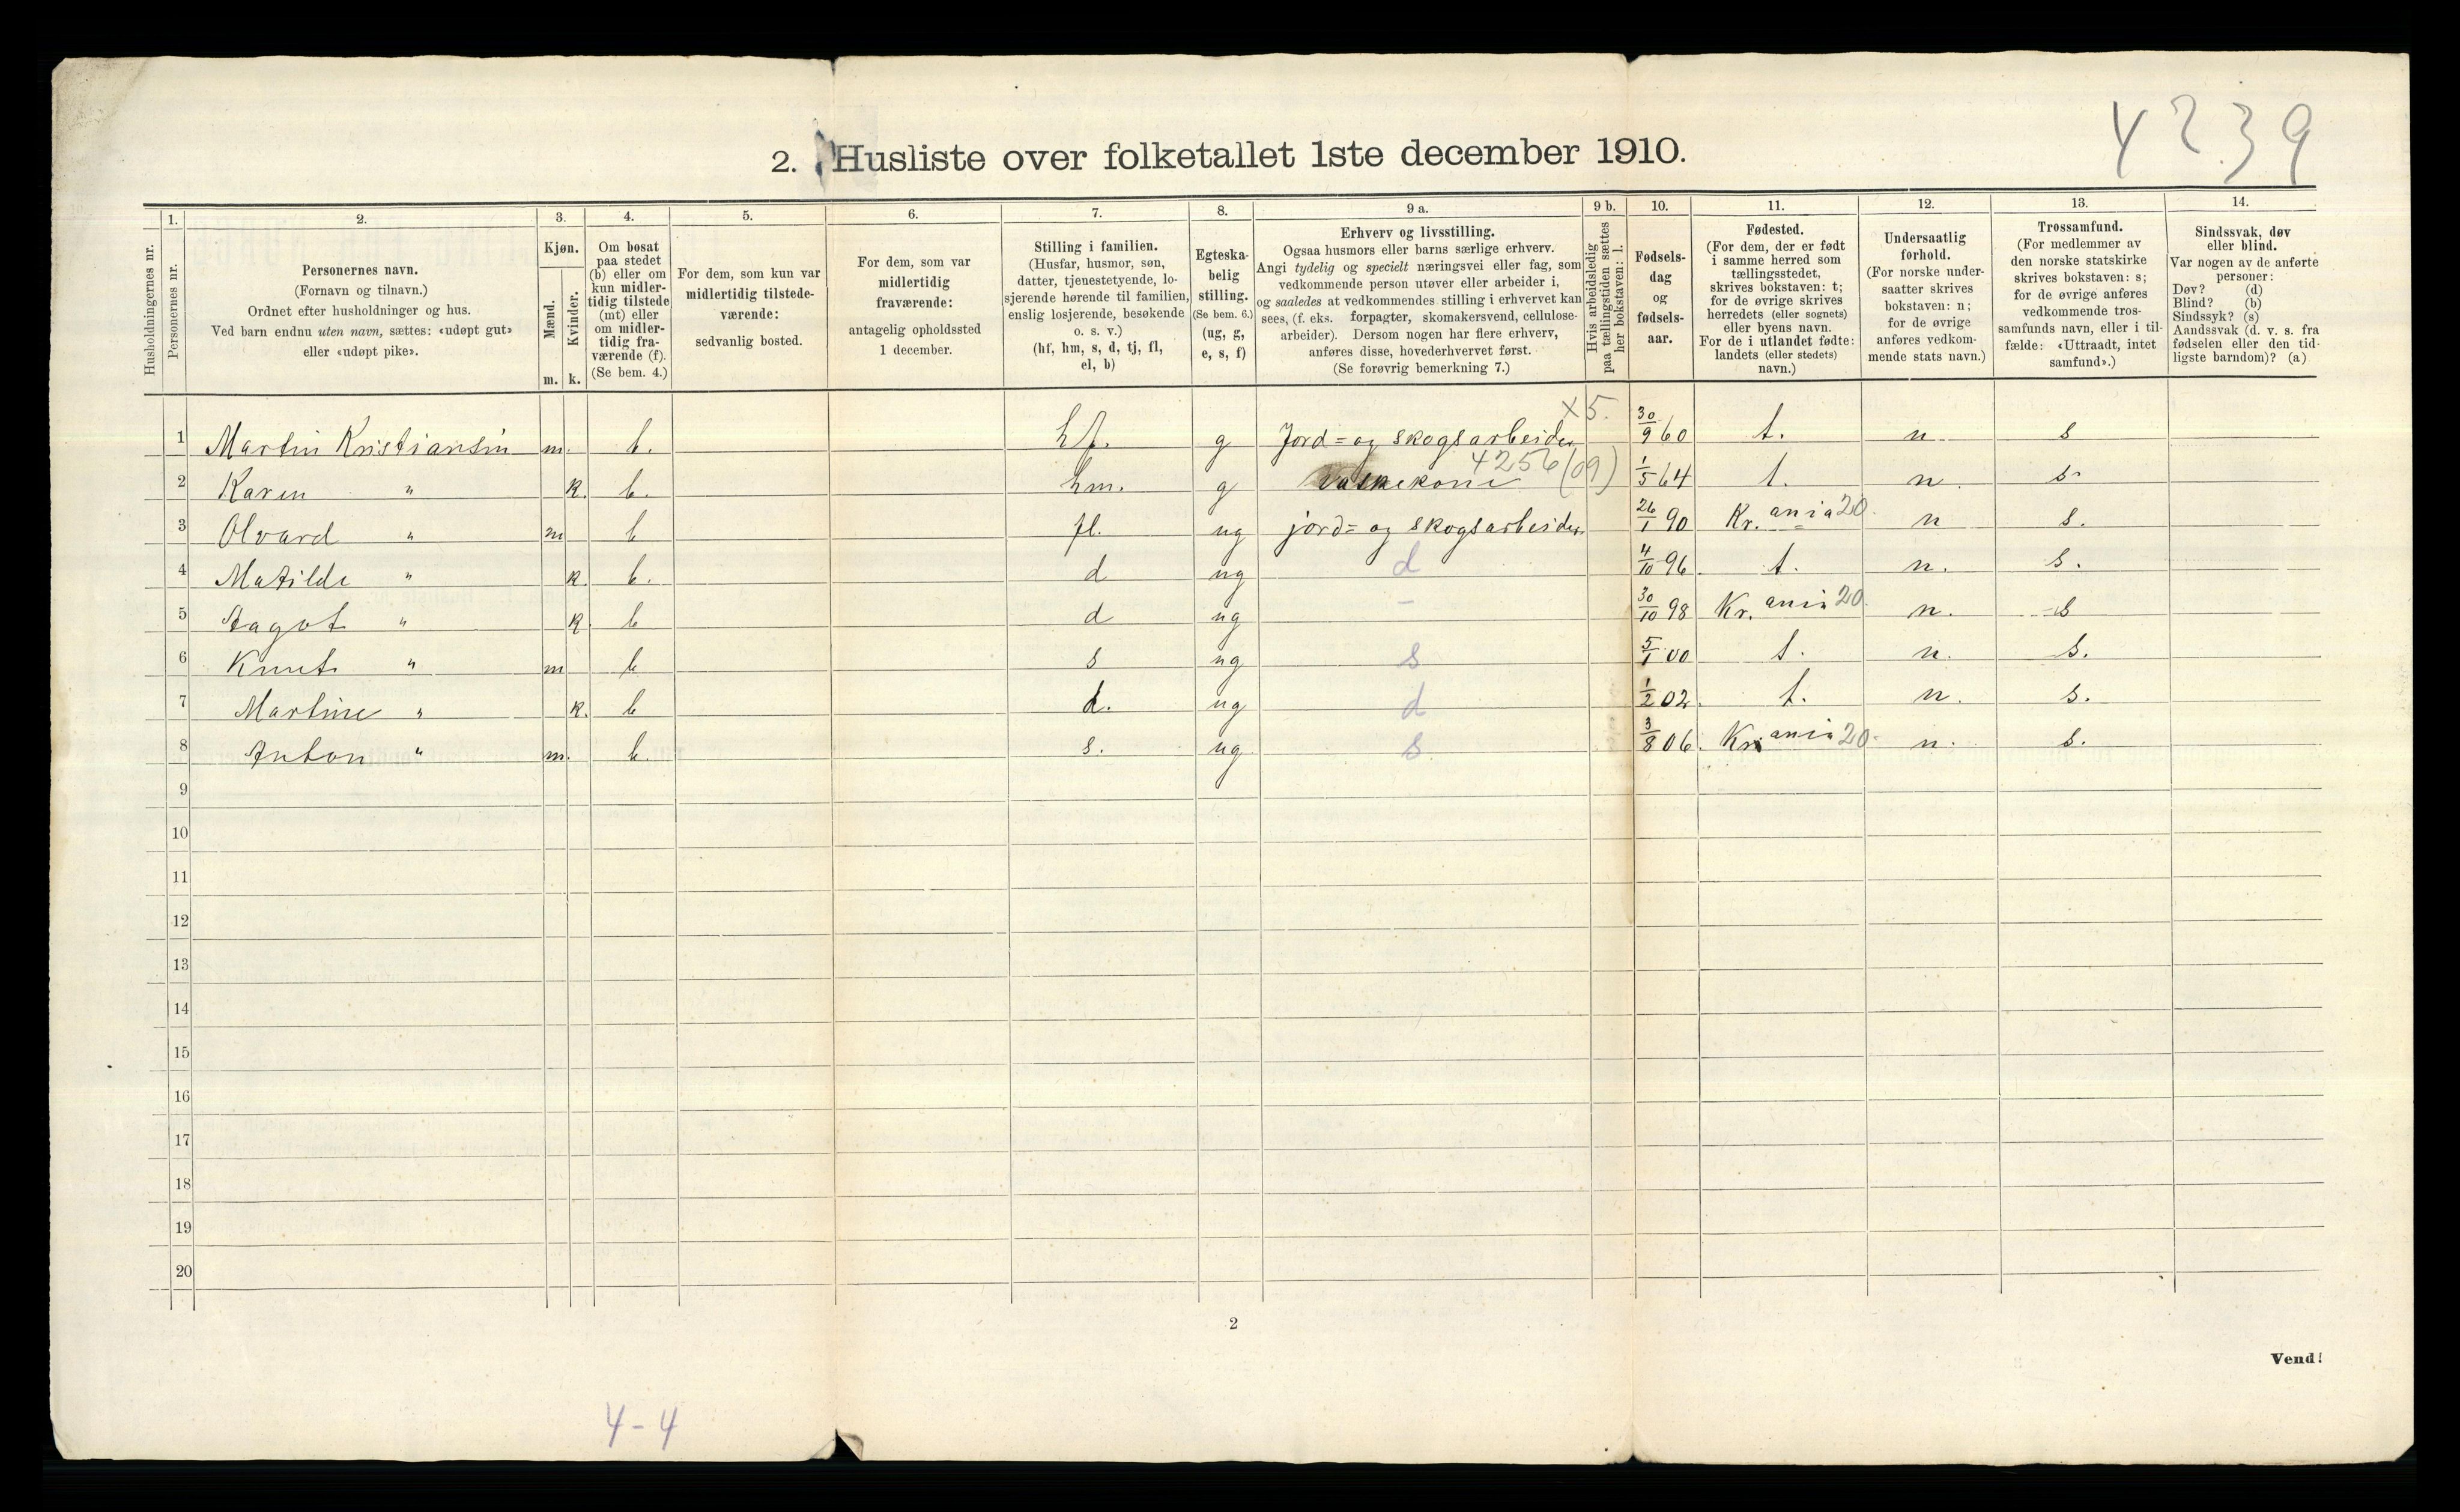 4239
2. Husliste over folketallet 1ste december 1910.
Husholdningernes nr.
1. Personernes nr.
2. Personernes navn. (Fornavn og tilnavn.) Ordnet efter husholdninger og hus. Ved barn endnu uten navn, sættes: «udøpt gut» eller «udøpt pike».
3. Kjøn. Mænd. m. Kvinder. k.
4. Om bosat paa stedet (b) eller om kun midler- tidig tilstede (mt) eller om midler- tidig fra- værende (f). (Se bem. 4.)
5. For dem, som kun var midlertidig tilstede- værende: sedvanlig bosted.
6. For dem, som var midlertidig fraværende: antagelig opholdssted 1 december.
7. Stilling i familien. (Husfar, husmor, søn, datter, tjenestetyende, lo- sjerende hørende til familien, enslig losjerende, besøkende o. s. v.) (hf, hm, s, d, tj, fl, el, b)
8. Egteska- belig stilling. (Se bem. 6.) (ug, g, e, s, f)
9 a. Erhverv og livsstilling. Ogsaa husmors eller barns særlige erhverv. Angi tydelig og specielt næringsvei eller fag, som vedkommende person utøver eller arbeider i, og saaledes at vedkommendes stilling i erhvervet kan sees, (f. eks. forpagter, skomakersvend, cellulose- arbeider). Dersom nogen har flere erhverv, anføres disse, hovederhvervet først. (Se forøvrig bemerkning 7.)
9 b. Hvis arbeidsledig paa tællingstiden sættes her bokstaven: l.
10. Fødsels- dag og fødsels- aar.
11. Fødested. (For dem, der er født i samme herred som tællingsstedet, skrives bokstaven: t; for de øvrige skrives herredets (eller sognets) eller byens navn. For de i utlandet fødte: landets (eller stedets) navn.)
12. Undersaatlig forhold. (For norske under- saatter skrives bokstaven: n; for de øvrige anføres vedkom- mende stats navn.)
13. Trossamfund. (For medlemmer av den norske statskirke skrives bokstaven: s; for de øvrige anføres vedkommende tros- samfunds navn, eller i til- fælde: «Uttraadt, intet samfund».)
14. Sindssvak, døv eller blind. Var nogen av de anførte personer: Døv? (d) Blind? (b) Sindssyk? (s) Aandssvak (d. v. s. fra fødselen eller den tid- ligste barndom)? (a)
x5.
1 Martin Kristiansen m. b. hf. g Jord= og skogsarbeider 30/9 60 t. n. s
4256 (09)
2 Karen " k. b. hm. g Vaskekone 1/5 64 t. n. s.
3 Olvard " m b fl. ug jord= og skogsarbeider 26/1 90 Kr.ania 20 n s.
4 Matilde " k. b. d ug d 4/10 96 t. n. s.
5 Aagot " k. b d ug – 30/10 98 Kr.ania 20 n. s
6 Knut " m b s ug s 5/1 00 t. n. s.
7 Martine " k. b d. ug d 1/2 02. t. n. s.
8 Anton " m. b. s. ug s 3/8 06. Kr.ania 20 n. s.
9
10
11
12
13
14
15
16
17
18
19
20
2
Vend!
4-4